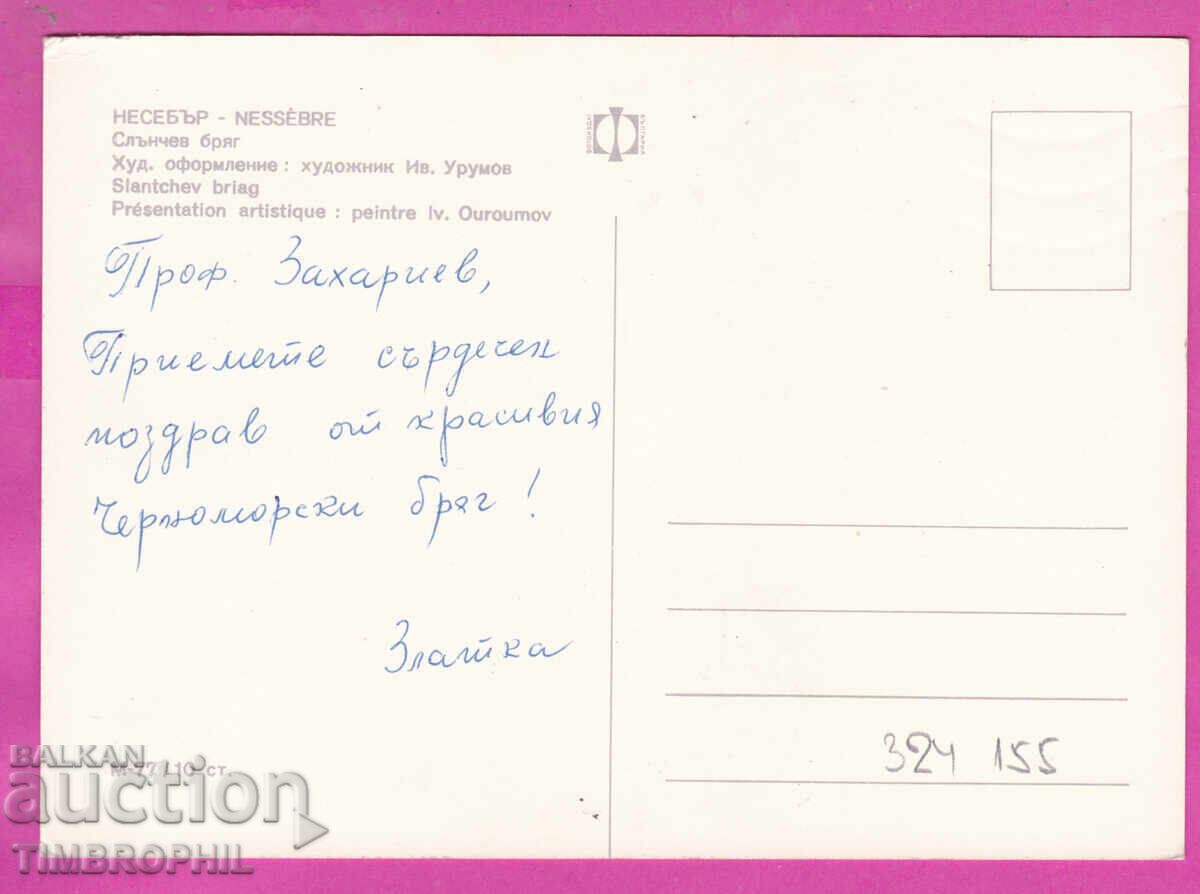 НЕСЕБЪР - NESSÈBRE
Слънчев бряг
Худ. оформление : художник Ив. Урумов
Slantchev briag
Présentation artistique : peintre Iv. Ouroumov
Проф. Захариев,
Приемете сърдечен
поздрав от красивия
Черноморски бряг !
Златка
М-77 / 10 ст.
324 155
BALKAN
auction
TIMBROPHIL